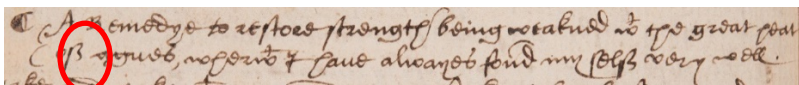 A Remedye to restore strength being weakned wt the great heat
of agues, wherwt I have alwayes fond my self very well.